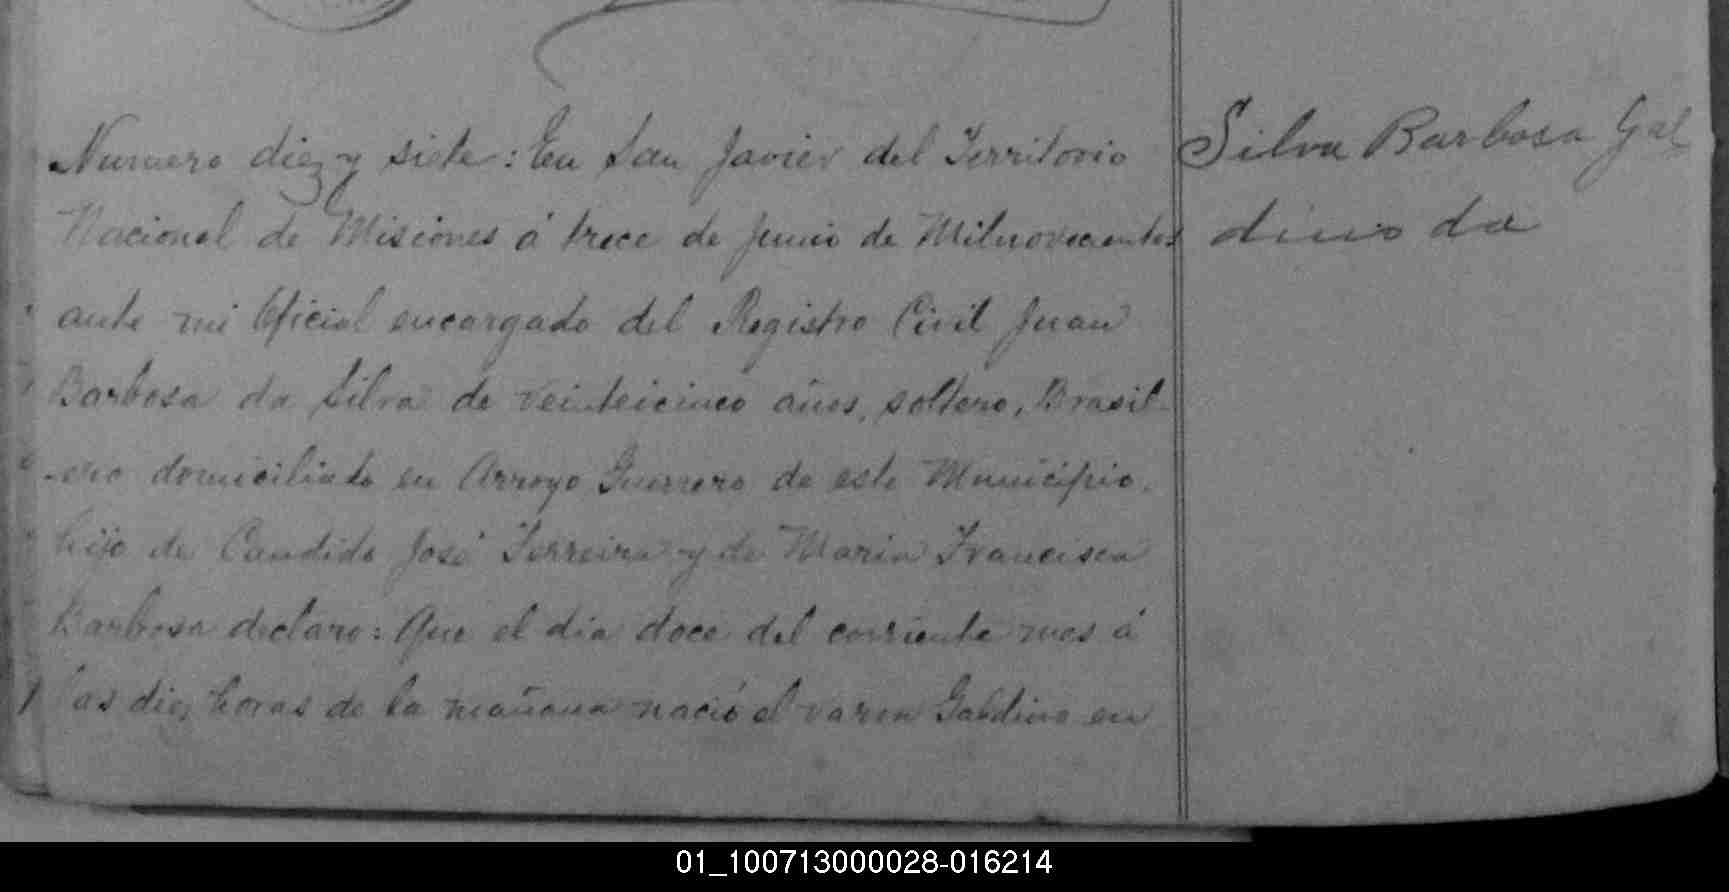 Numero diez y siete: En San Javier del Territorio
Nacional de Misiones á trece de Junio de Milnovecientos
ante mi Oficial encargado del Registro Civil Juan
Barbosa da Silva de veinteicinco años, soltero, Brasil-
-ero domiciliado en Arroyo Guerrero de este Municipio,
hijo de Candido José Ferreira y de Maria Francisca
Barbosa declaro: Que el dia doce del corriente mes á
las diez horas de la mañana nació el varon Galdino en
Silva Barbosa Gal
dino da
01_100713000028-016214